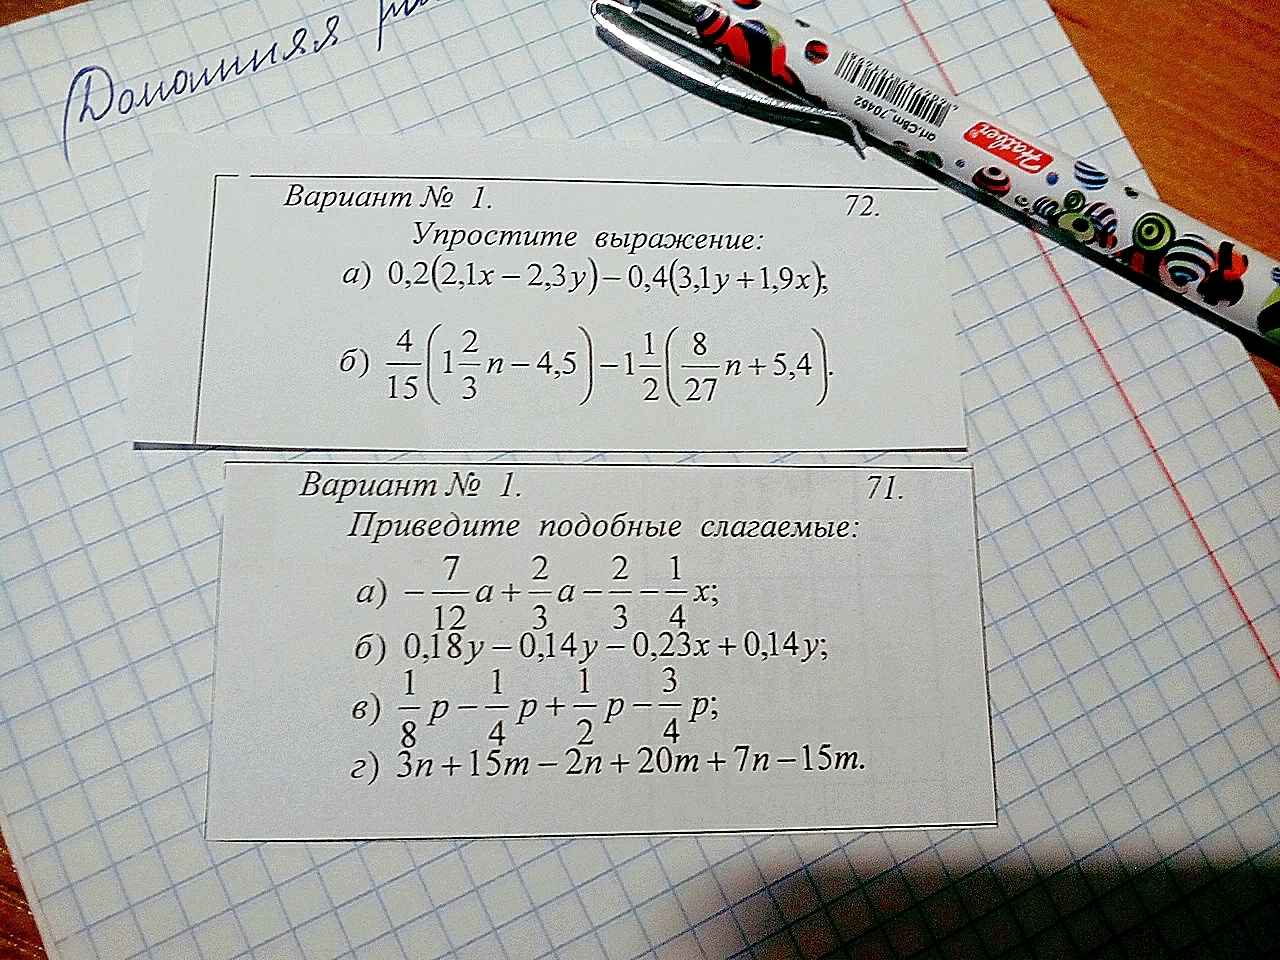 Домашняя
art.CBm_70462
Hatber
Вариант № 1. 72.
Упростите выражение:
а) 0,2(2,1x − 2,3y) − 0,4(3,1y + 1,9x);
б) 4/15(1 2/3 n − 4,5) − 1 1/2(8/27 n + 5,4).
Вариант № 1. 71.
Приведите подобные слагаемые:
а) −7/12 a + 2/3 a − 2/3 − 1/4 x;
б) 0,18y − 0,14y − 0,23x + 0,14y;
в) 1/8 p − 1/4 p + 1/2 p − 3/4 p;
г) 3n + 15m − 2n + 20m + 7n − 15m.